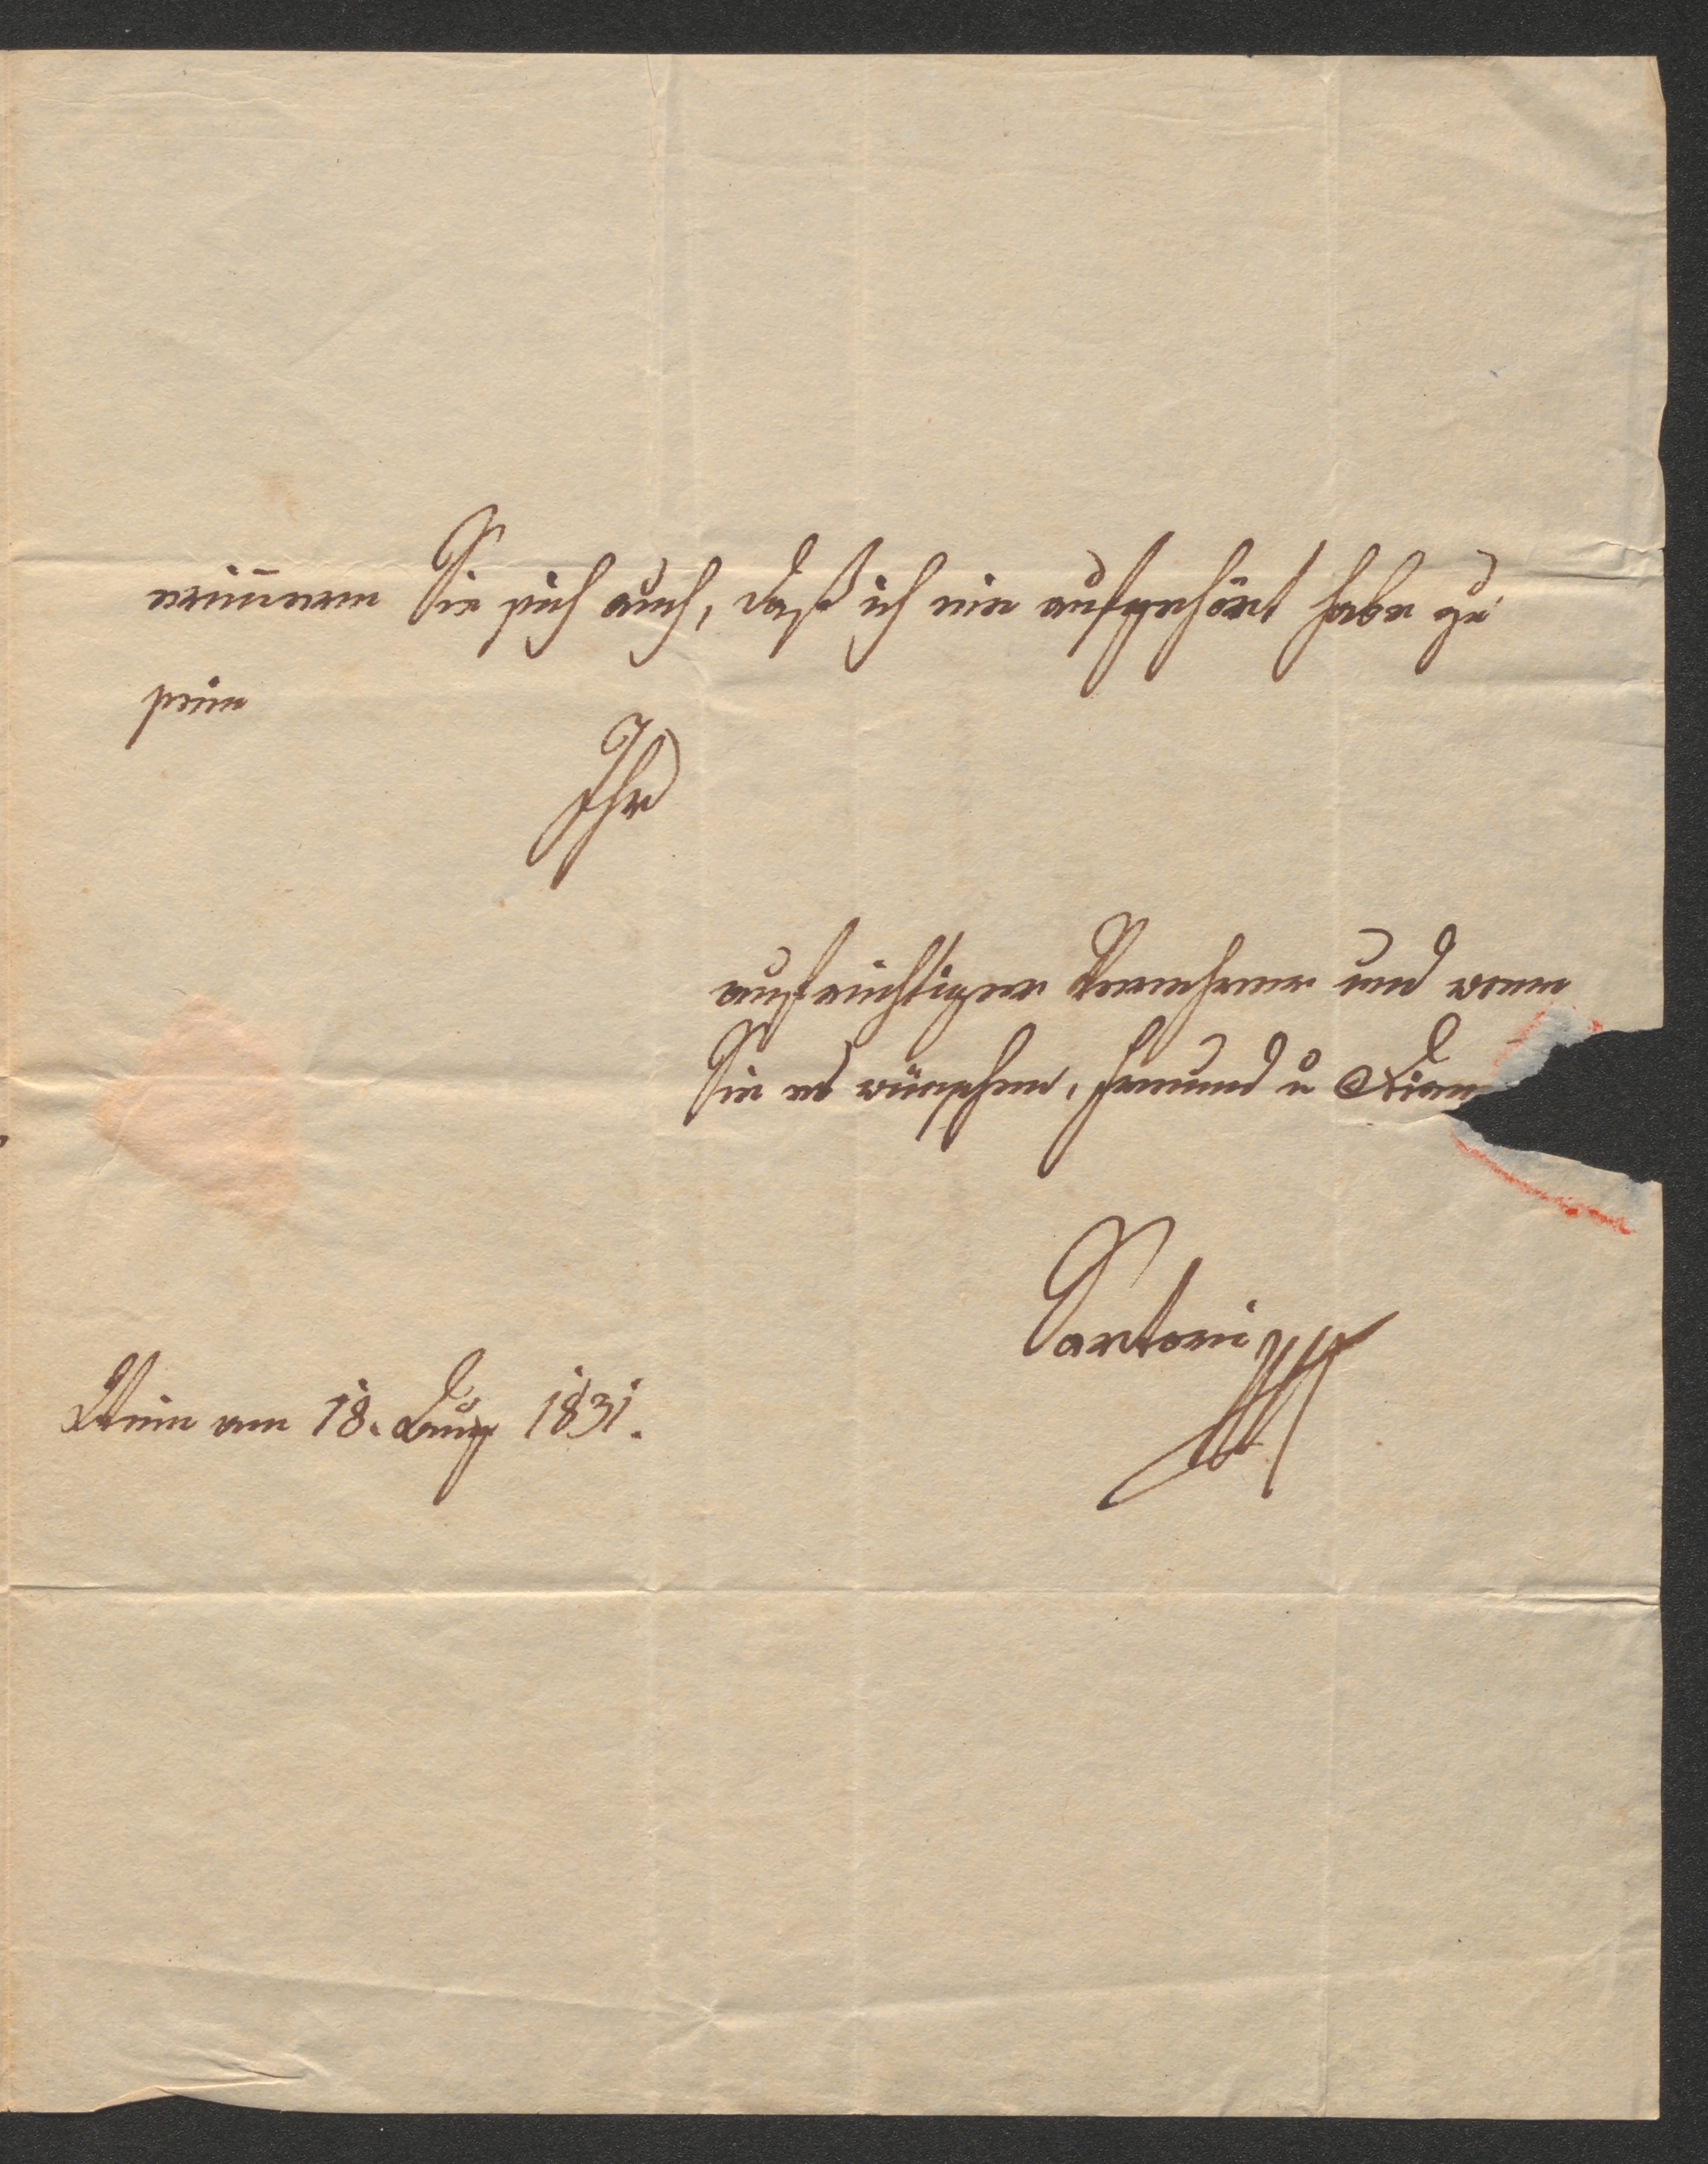 erin̄ern Sie sich auch, daß ich nie aufgehört habe zu
sein
Ihr
aufrichtiger Verehrer und wenn
Sie es wünschen, Freund u Dien
Sartori
Wien am 18. Aug 1831.